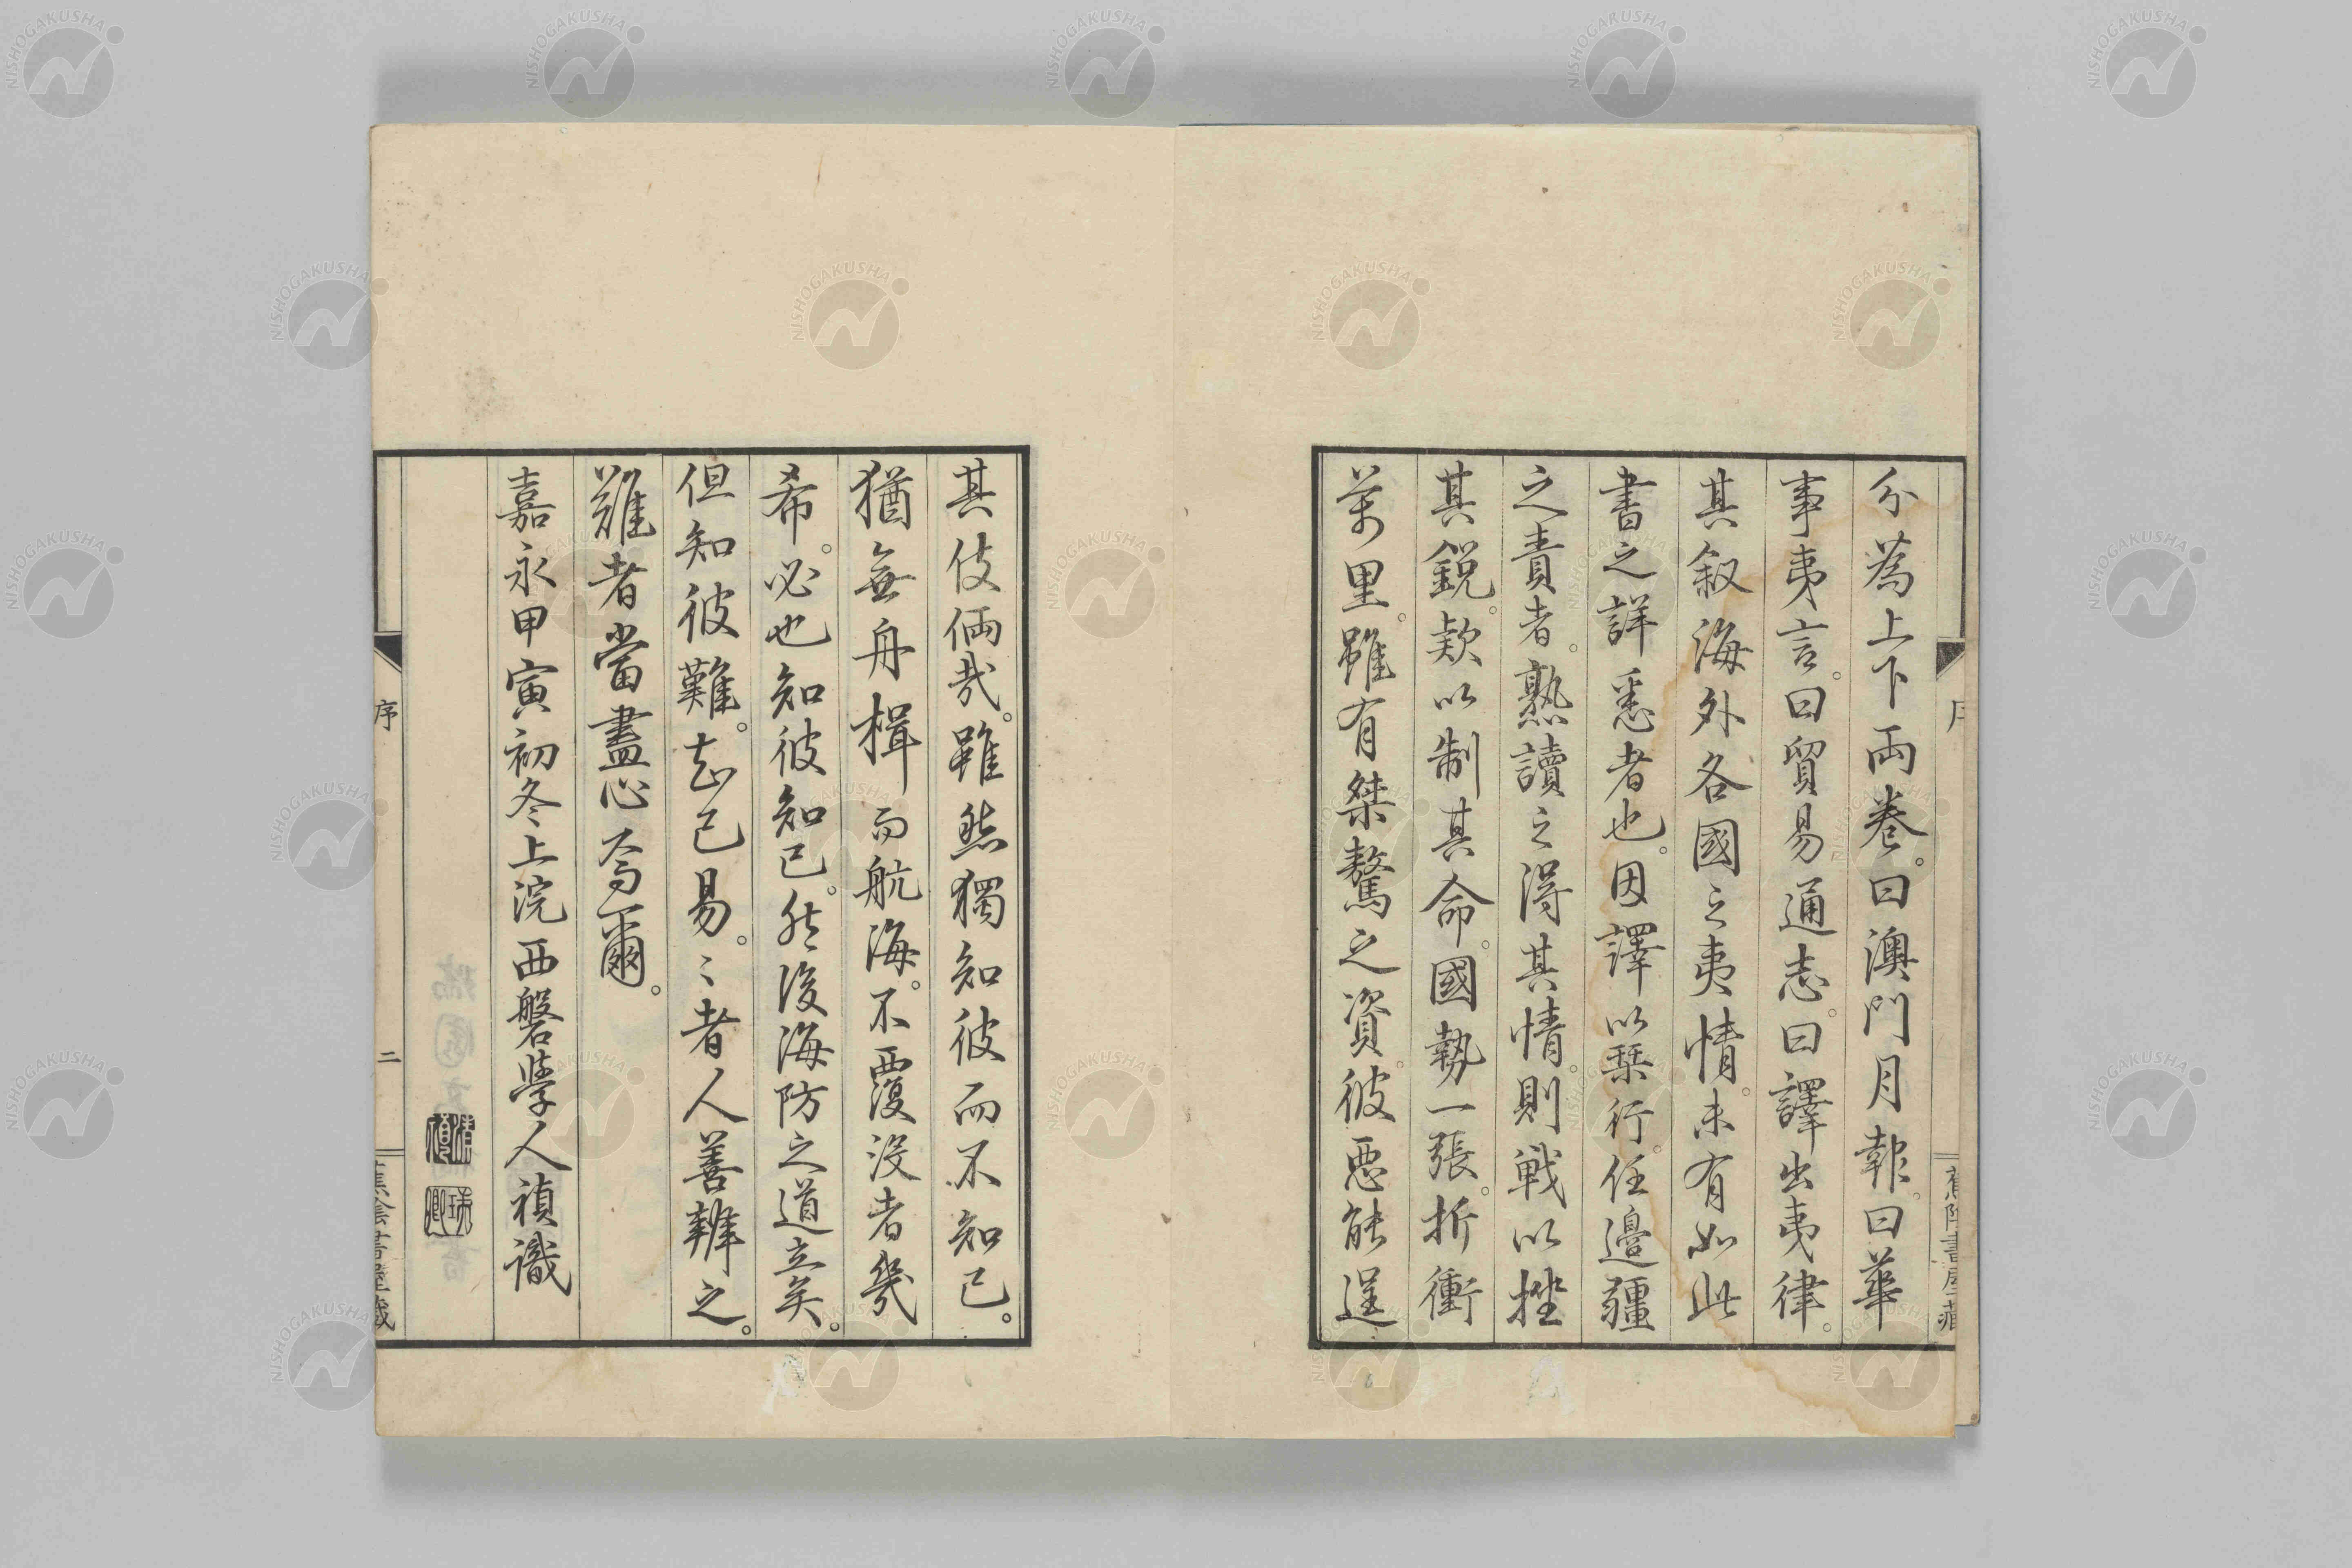 分為上下両卷。曰澳門月報。曰華
事夷言。曰貿易通志。曰譯出夷律。
其叙海外各國之夷情。未有如此
書之詳悉者也。因譯以梨行。任邉疆
之責者。熟讀之得其情。則戦以挫
其鋭。欵以制其命。國勢一張。折衝
萬里。雖有桀驁之資。彼惡能逞
其伎倆哉。雖然獨知彼而不知己。
猶無舟楫而航海。不覆没者幾
希。必也知彼知己。然後海防之道立矣。
但知彼難。知己易。〻者人善辨之。
難者當盡心焉爾。
嘉永甲寅初冬上浣西磐学人禎識
序
二
蕉陰書屋藏
NISHOGAKUSHA